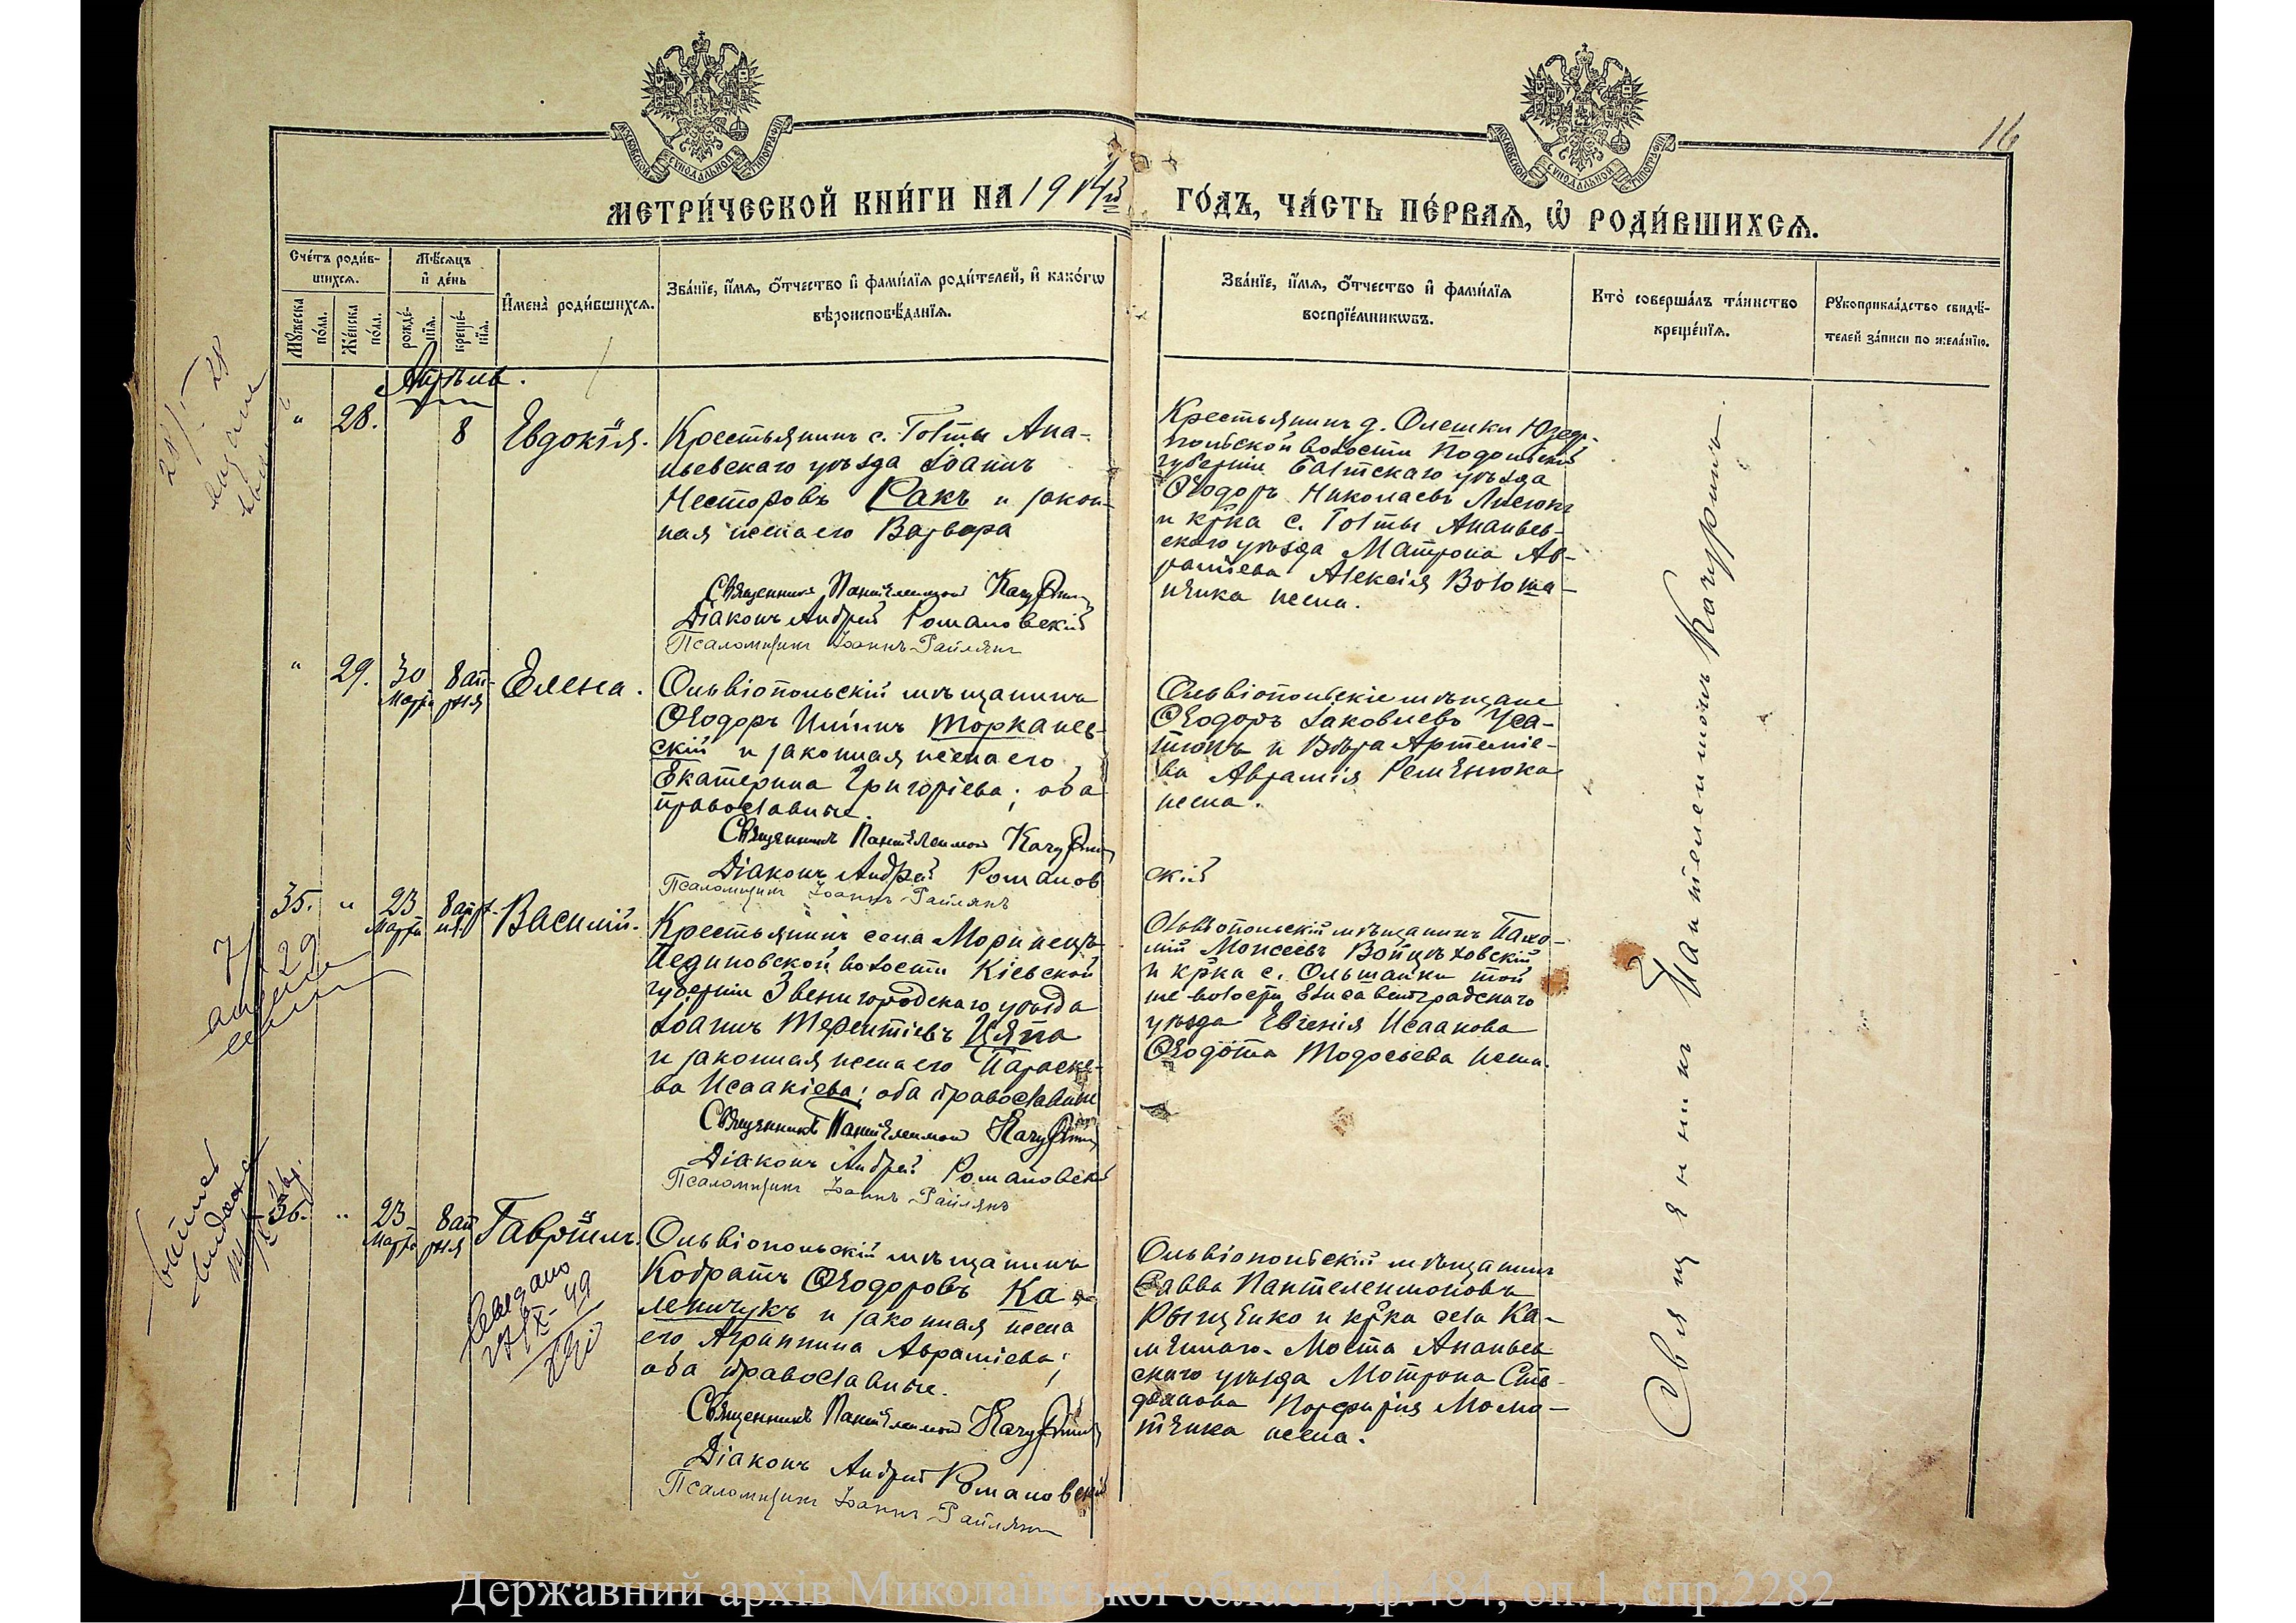 16
МОСКОВСКОЙ СѴНОДАЛЬНОЙ ТИПОГРАФІИ
МОСКОВСКОЙ СѴНОДАЛЬНОЙ ТИПОГРАФІИ
МЕТРИ́ЧЕСКОЙ КНИ́ГИ НА 1914й ГО́ДЪ, ЧА́СТЬ ПЕ́РВАѦ, Ѡ҆ РОДИ́ВШИХСѦ.
Сче́тъ роди́в-
шихсѧ.
Мꙋ́жеска по́ла.
Же́нска по́ла.
Мѣ́сѧцъ
и҆ де́нь
рожде́-нїѧ.
креще́-нїѧ.
И҆мена̀ роди́вшихсѧ.
Зва́нїе, и҆́мѧ, ѻ҆́тчество и҆ фами́лїѧ роди́телей, и҆ како́гѡ
вѣроисповѣ́данїѧ.
Зва́нїе, и҆́мѧ, ѻ҆́тчество и҆ фами́лїѧ
воспрїе́мникѡвъ.
Кто̀ соверша́лъ та́инство
креще́нїѧ.
Рꙋкоприкла́дство свидѣ́-
телей за́писи по жела́нїю.
Апрѣль.
" 28. 8 Евдокія.
Крестьянинъ с. Голты Ана-
ньевскаго уѣзда Іоаннъ
Несторовъ Ракъ и закон-
ная жена его Варвара
Священникъ Пантелеимон Качурин
Діаконъ Андрей Романовскій
Псаломщикъ Іоаннъ Райлянъ
Крестьянинъ д. Олешки Юзеф-
польской волости Подольской
губерніи Балтскаго уѣзда
Ѳеодоръ Николаевъ
и кр-ка с. Голты Ананьев-
скаго уѣзда Матрона Ав-
рамiева Алексія Волоша-
нѣнка жена.
" 29. 30 Марта 8 апрѣля Елена.
Ольвіопольскій мѣщанинъ
Ѳеодоръ Ильинъ Торканев-
скій и законная жена его
Екатерина Григоріева; оба
православные.
Священникъ Пантелеимон Качурин
Діаконъ Андрей Романов
скій
Псаломщикъ Іоаннъ Райлянъ
Ольвіопольскіе мѣщане
Ѳеодоръ Іаковлевъ Уса-
тюкъ и Вѣра Артеміе-
ва Аврамія Ременюка
жена.
35. " 23 Марта 8 апр-ля Василій.
Крестьянинъ села Моринецъ
Пединовской волости Кіевской
губерніи Звенигородскаго уѣзда
Іоаннъ Терентіевъ Цяпа
и законная жена его Параске-
ва Исаакіева; оба православные
Священникъ Пантелеимон Качурин
Діаконъ Андрей Романовскій
Псаломщикъ Іоаннъ Райлянъ
Ольвіопольскій мѣщанинъ Пахо-
мій Моисеевъ Войцѣховскій
и кр-ка с. Ольшанки той
же волости Елисаветградскаго
уѣзда Евгенія Исаакова
Ѳеодота Тодосьева жена.
36. " 23 Марта 8 апрѣля Гавріилъ.
Ольвіопольскій мѣщанинъ
Кодратъ Ѳеодоровъ Ка-
леничукъ и законная жена
его Агриппина Аврамiева;
оба православные.
Священникъ Пантелеимон Качурин
Діаконъ Андрей Романовскій
Псаломщикъ Іоаннъ Райлянъ
Ольвіопольскій мѣщанинъ
Савва Пантелеимоновъ
Рыщенко и кр-ка села Ка-
мянаго-Моста Ананьев
скаго уѣзда Мотрона Сте-
фанова Порфирія Мома-
тенка жена.
Священникъ Пантелеимонъ Качуринъ.
Державний архів Миколаївської області, ф.484, оп.1, спр.2282